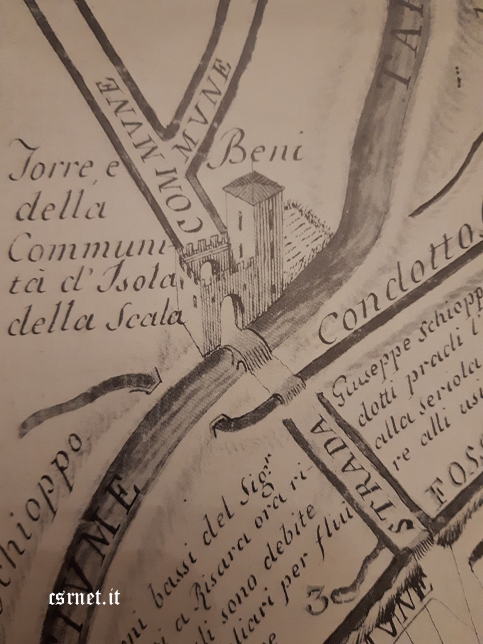 TAR
COMMVNE
MVNE
Torre, e Beni
della
Communi
tà d'Isola
della Scala
Condotto
Giuseppe Schiopp
dotti pradi l'
alla seriola
re alli usi
STRADA
FOSS
chioppo
IVME
ni bassi del Sigr
a Risara ora ri-
di sono debite
liari per fluui
3
VNE
csrnet.it